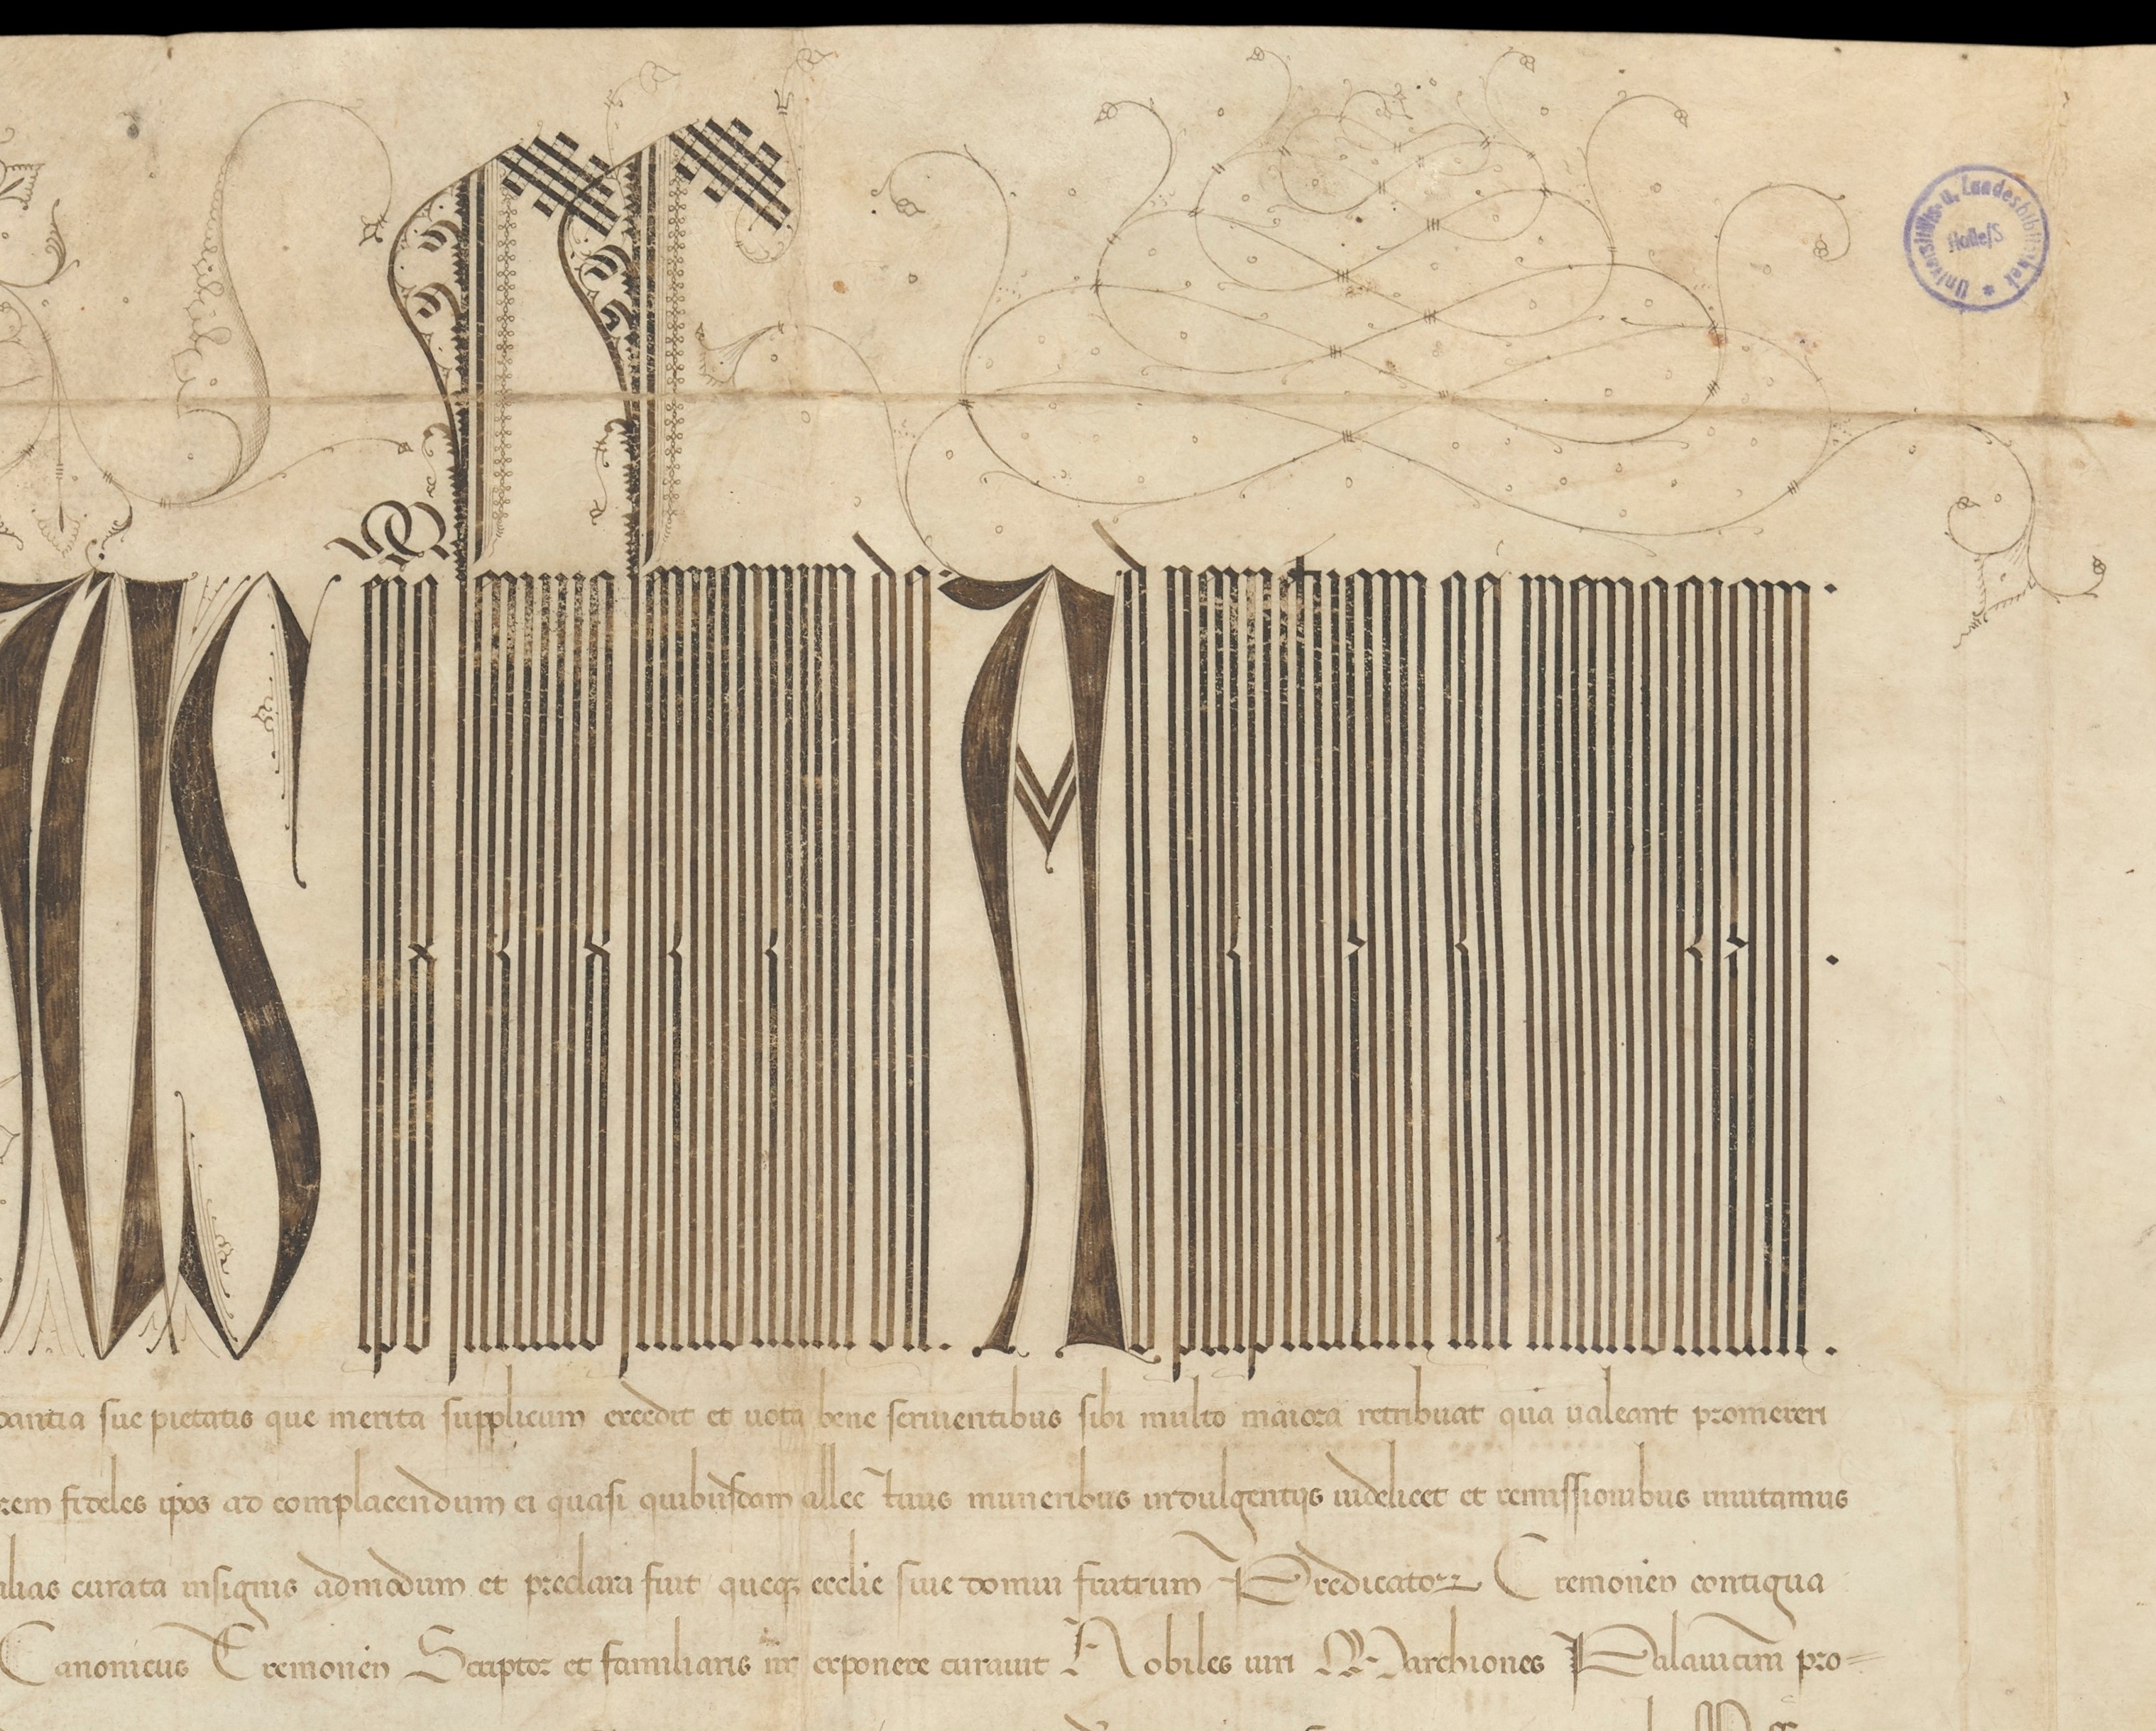 Universitäts- u. Landesbibliothek Halle/S
US ep̄s seruus seruorum dei. Ad perpetuam rei memoriam.
dantia sue pietatis que merita supplicum excedit et uota bene seruientibus sibi multo maiora retribuat qua ualeant promereri
rem fideles ipos ad complacendum ei quasi quibusdam allectiuis muneribus indulgentijs uidelicet et remissionibus inuitamus
ilias curata insignis admodum et preclara fuit queqz ecclie siue domui fratrum Predicatorꝝ Cremonen contigua
Canonicus Cremonen Scriptor et familiaris nr̄ exponere curauit Nobiles uiri Marchiones Palauicini pro=